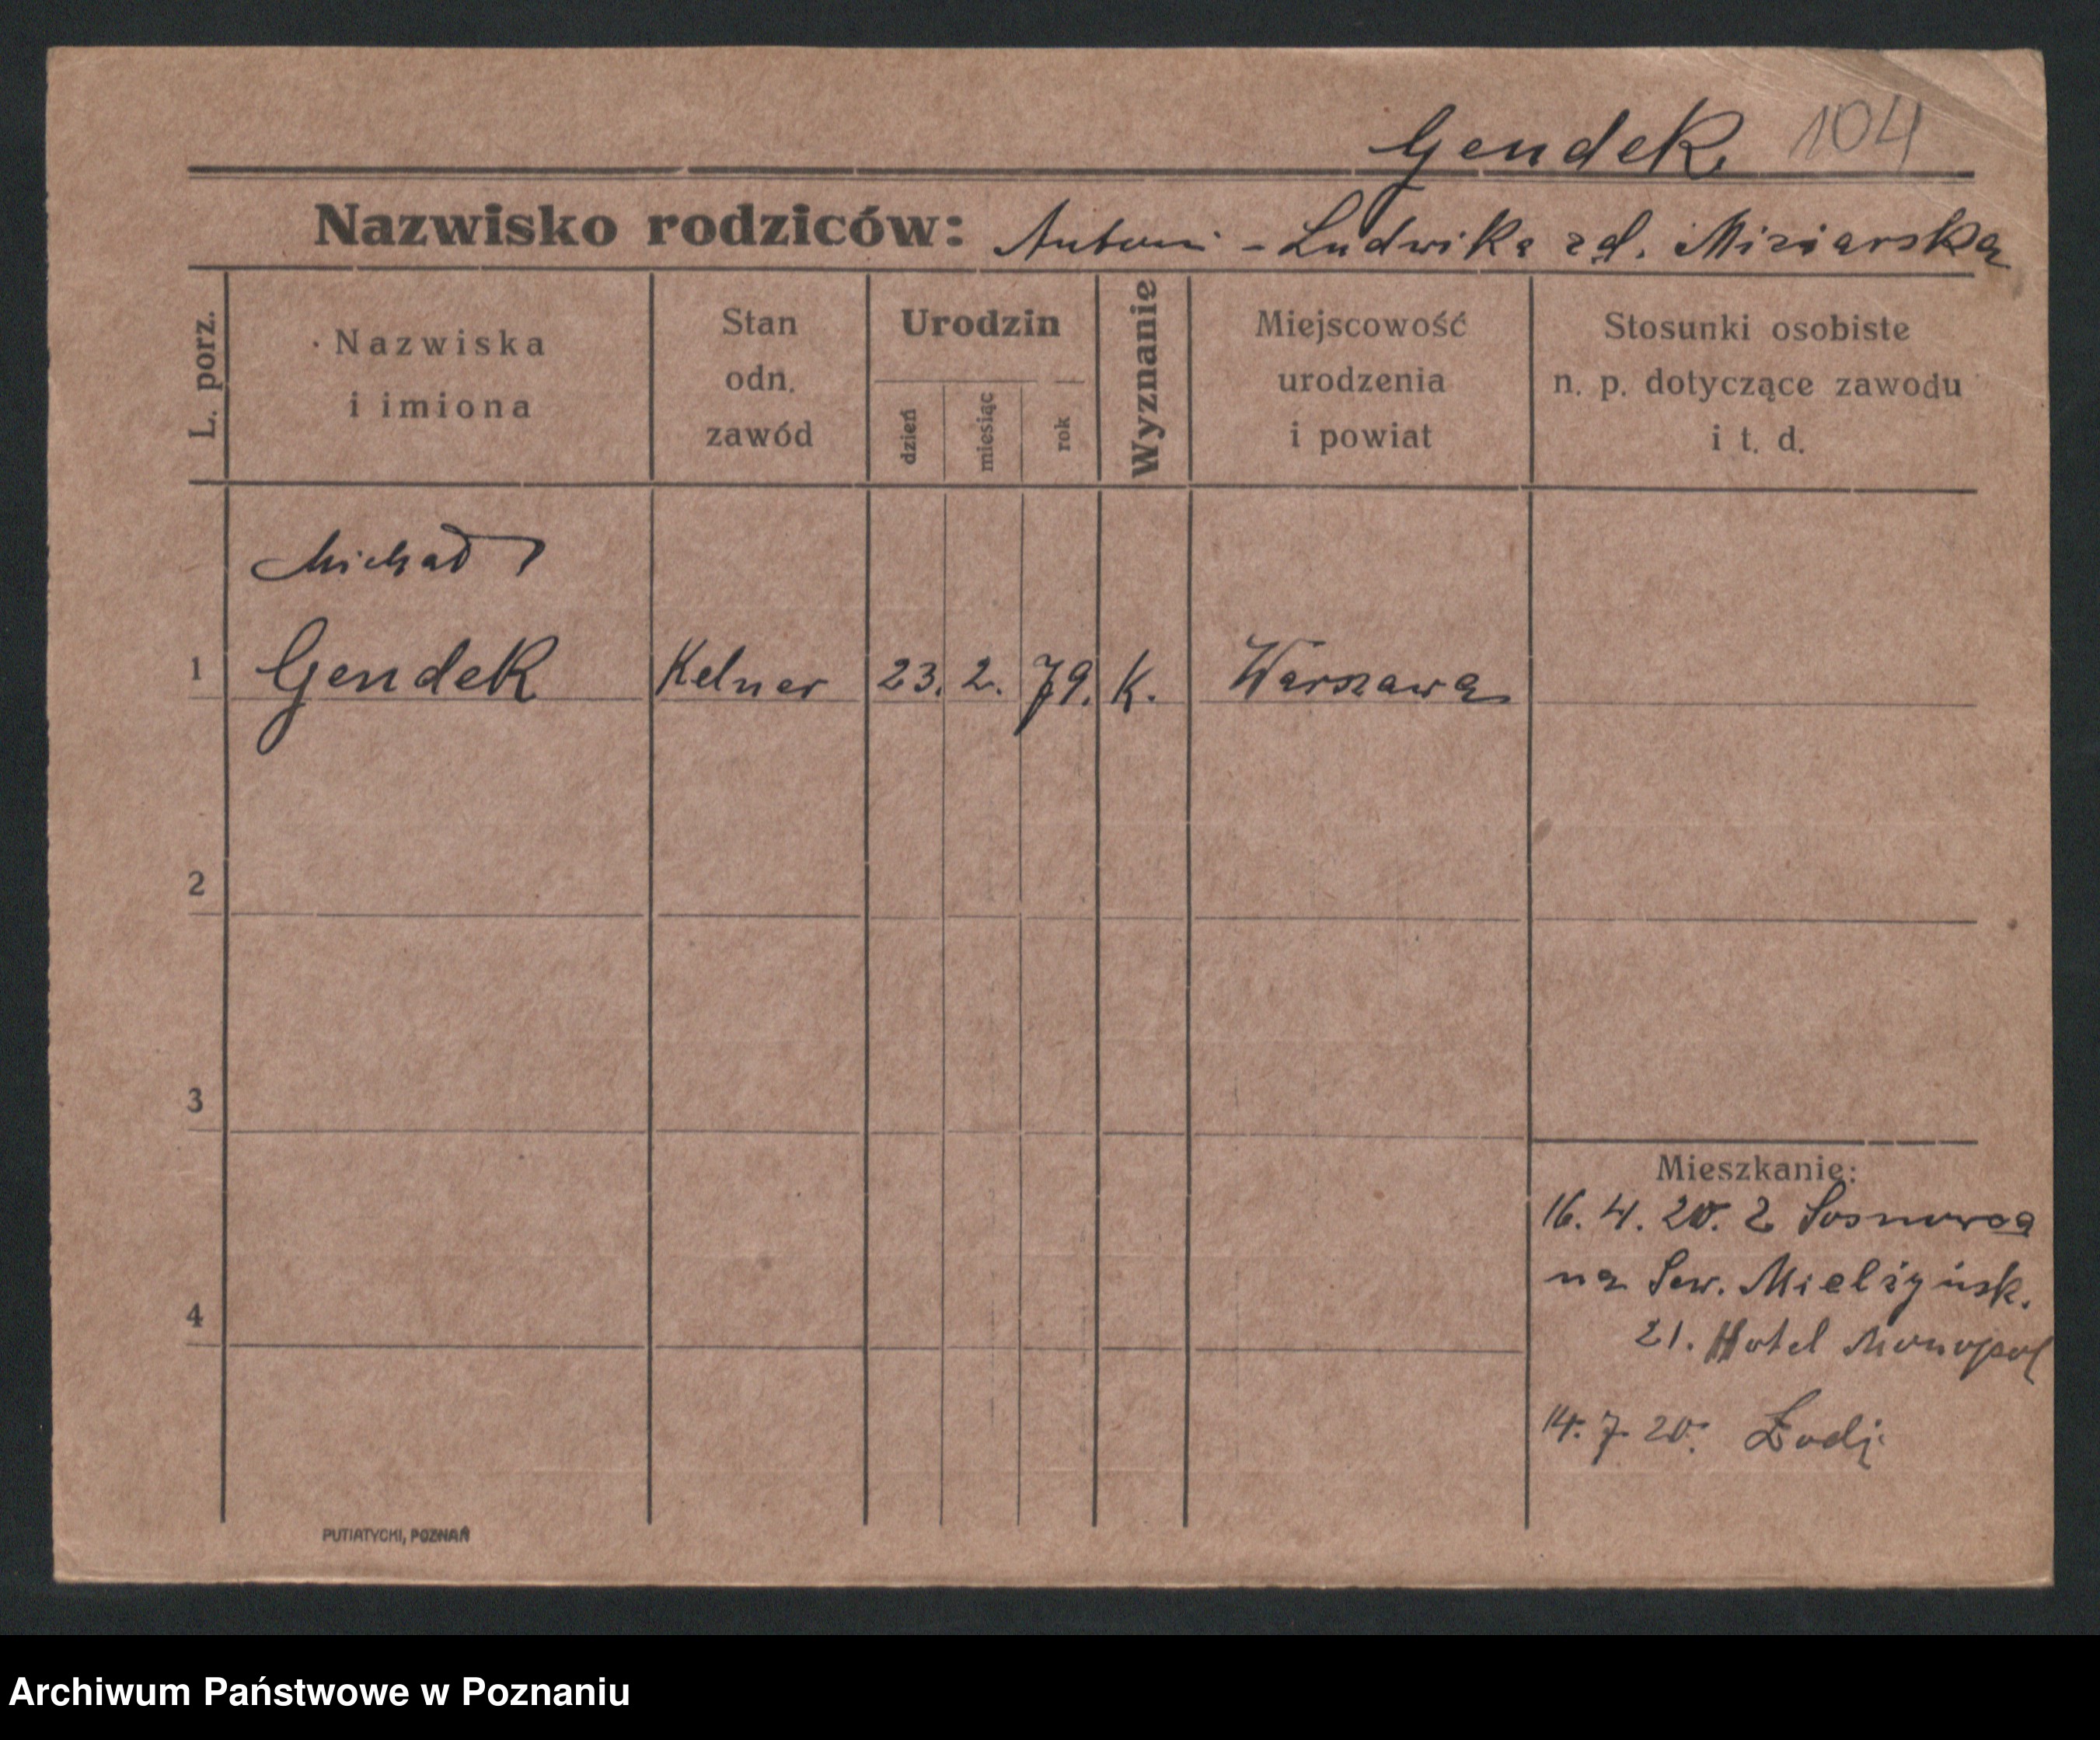 Gendek. 104
Nazwisko rodziców: Antoni - Ludwika zd. Misiarska
L. porz.
Nazwiska
i imiona
Stan
odn.
zawód
Urodzin
dzień
miesiąc
rok
Wyznanie
Miejscowość
urodzenia
i powiat
Stosunki osobiste
n. p. dotyczące zawodu
i t. d.
Michał
1 Gendek Kelner 23. 2. 79. K. Warszawa
2
3
4
Mieszkanie:
16. 4. 20. z Sosnowca
na Sew. Mielżyńsk.
21. Hotel Monopol
14. 7. 20. Łodź
PUTIATYCKI, POZNAŃ
Archiwum Państwowe w Poznaniu